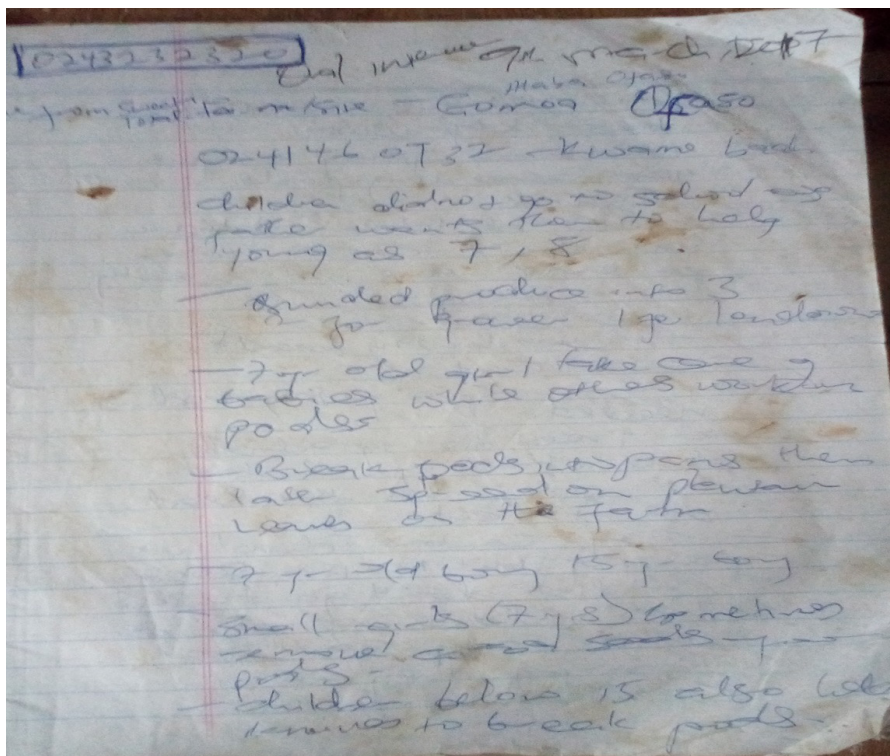 0243232320
Oral 9th march
from to - Gomoa
0241460737 - Kwame
children did not go to school as
father wants them to help
young as 7, 8
- produce into 3
2 for 1 for landowner
- 7 yr old girl take care of
babies while others work on
pods
- Break pods into pans then
later spread on plantain
leaves on the farm
- 7 yr old boy 15 yr boy
- Small girls (7 yrs) sometimes
remove seeds from
pods.
- children below 15 also
knives to break pods.